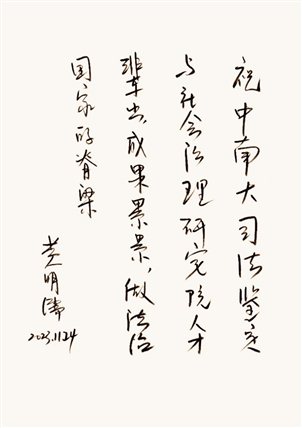 祝中南大司法鉴定
与社会治理研究院人才
辈出,成果累累,做法治
国家的脊梁
黄明儒
2023.11.24